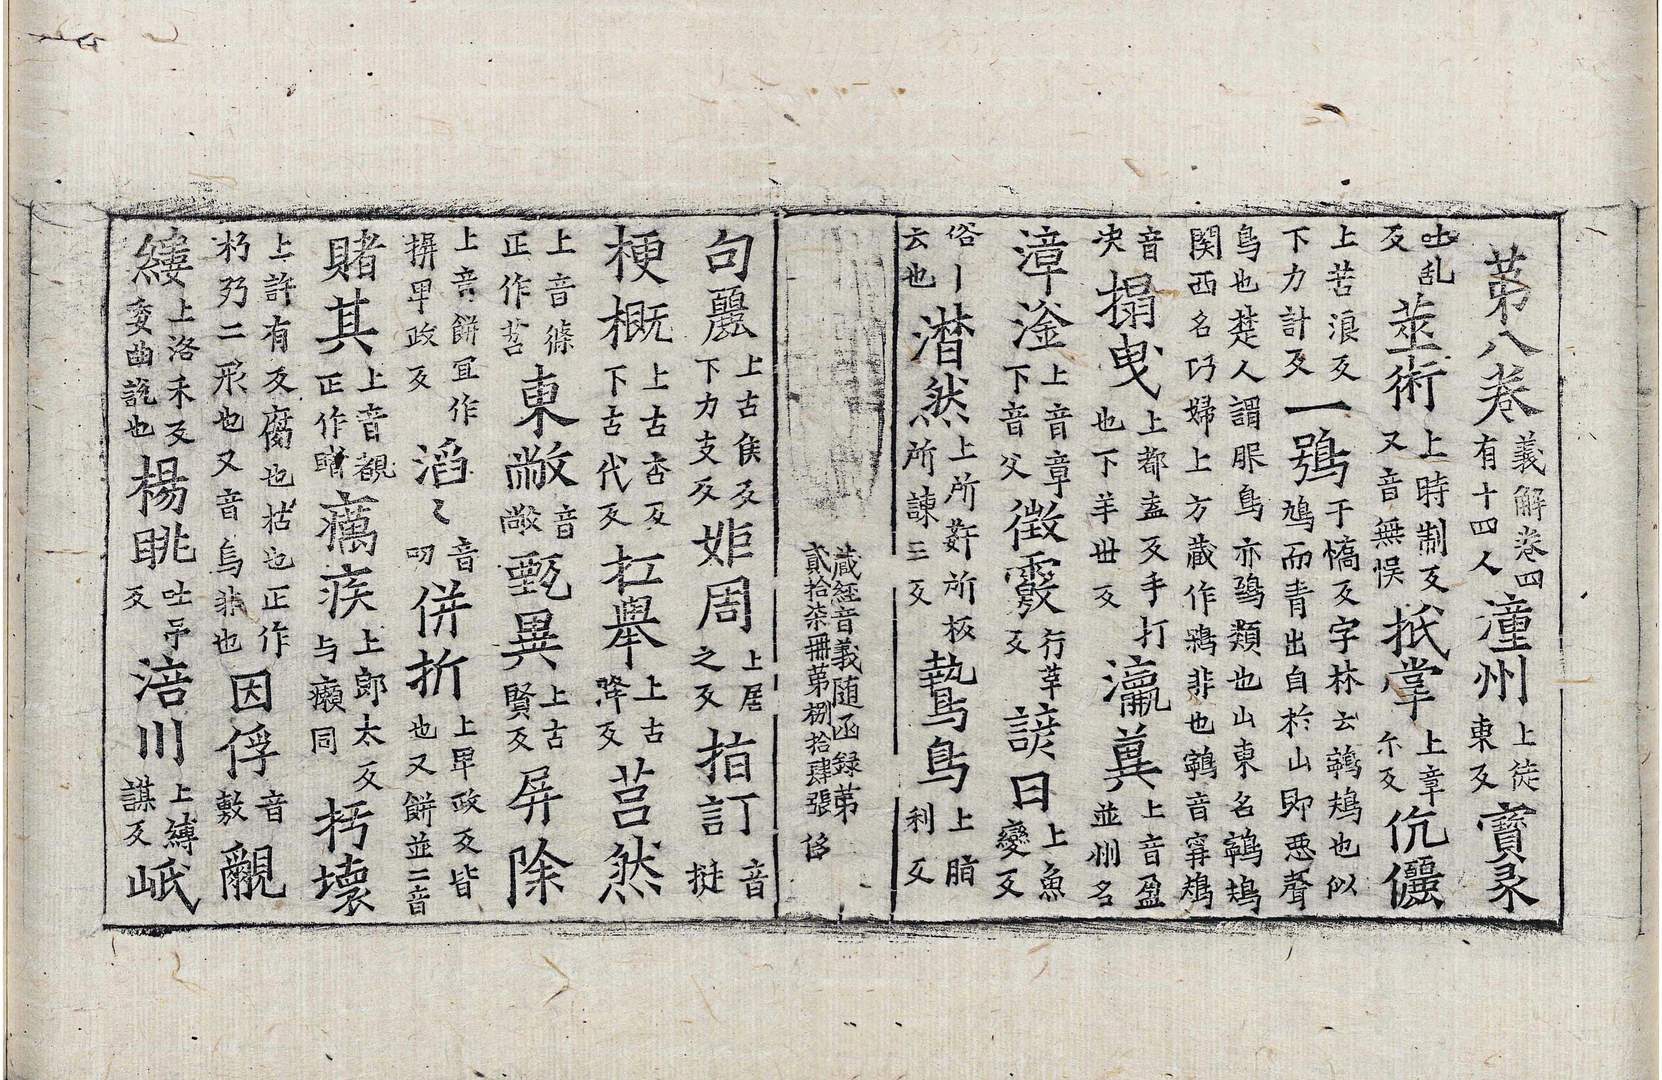 苐八卷義解卷四有十四人潼州上徒東反竄彔
吐乱反莁術上時制反又音無悮抵掌上章尓反伉儷
上苦浪反下力計反一鴞于憍反字林云鸋鴂也似鳩而青出自於山即惡聲
鳥也楚人謂服鳥亦鵶類也山東名鸋鴂関西名巧婦上方蔵作鵶非也鸋音寜鴂
音决搨曳上都盍反手打也下羊世反瀛兾上音盈並州名
漳滏上音章下音父徴霞行革反諺曰上魚變反
俗丨云也潸然上所姧所板所諫三反鷙鳥上脂利反
蔵經音義随函録苐貳拾柒冊苐捌拾肆張 侈
句麗上古侯反下力支反姫周上居之反揩訂音挺
梗概上古杏反下古代反扛舉上古降反莒然
上音條正作苕東敞音敞甄異上古賢反屏除
上音餅冝作摒畢政反滔〻音叨併折上畢政反皆也又餅並二音
賭其上音覩正作睹癘疾上郎太反与癩同朽壞
上許有反腐也枯也正作㱙㱛二形也又音烏非也因俘音敷覼
縷上洛禾反委曲説也楊眺吐弔反涪川上縛謀反岷